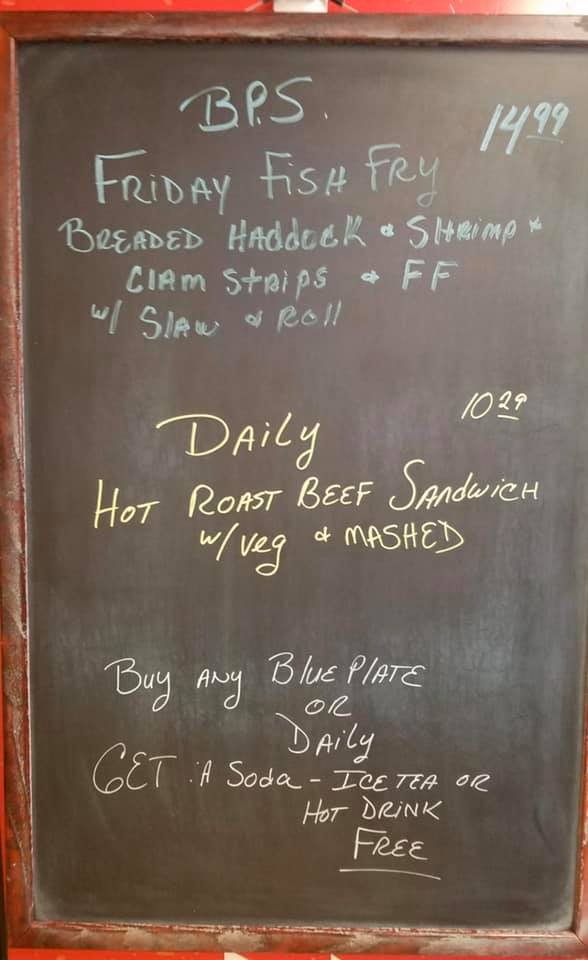 B.P.S.
14.99
FRiDAY FiSH FRY
BREADED HADDOCK & SHRIMP &
CLAM STRIPS & FF
w/ SLAW & ROLL
10 29
DAiLY
HOT ROAST BEEF SANDWICH
w/ veg & MASHED
Buy ANY BLUE PLATE
OR
DAiLY
GET A Soda - ICE TEA OR
HOT DRINK
FREE